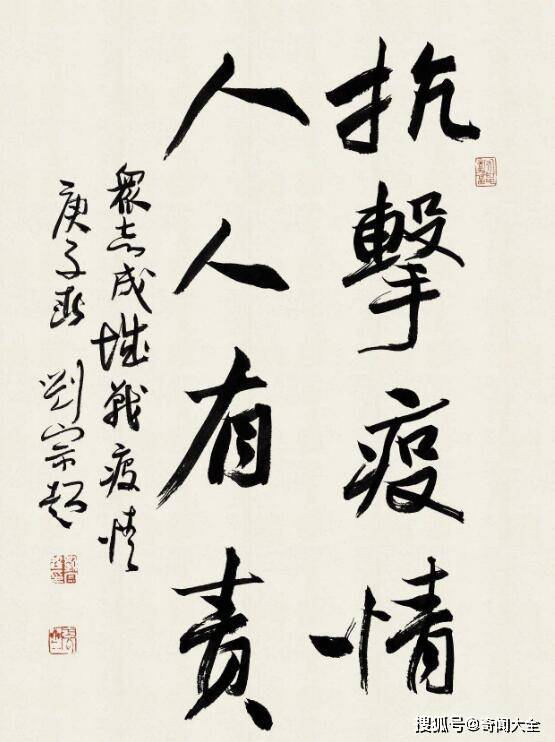 抗擊疫情
人人有责
衆志成城戰疫情
庚子春
劉宗超
搜狐号@奇闻大全